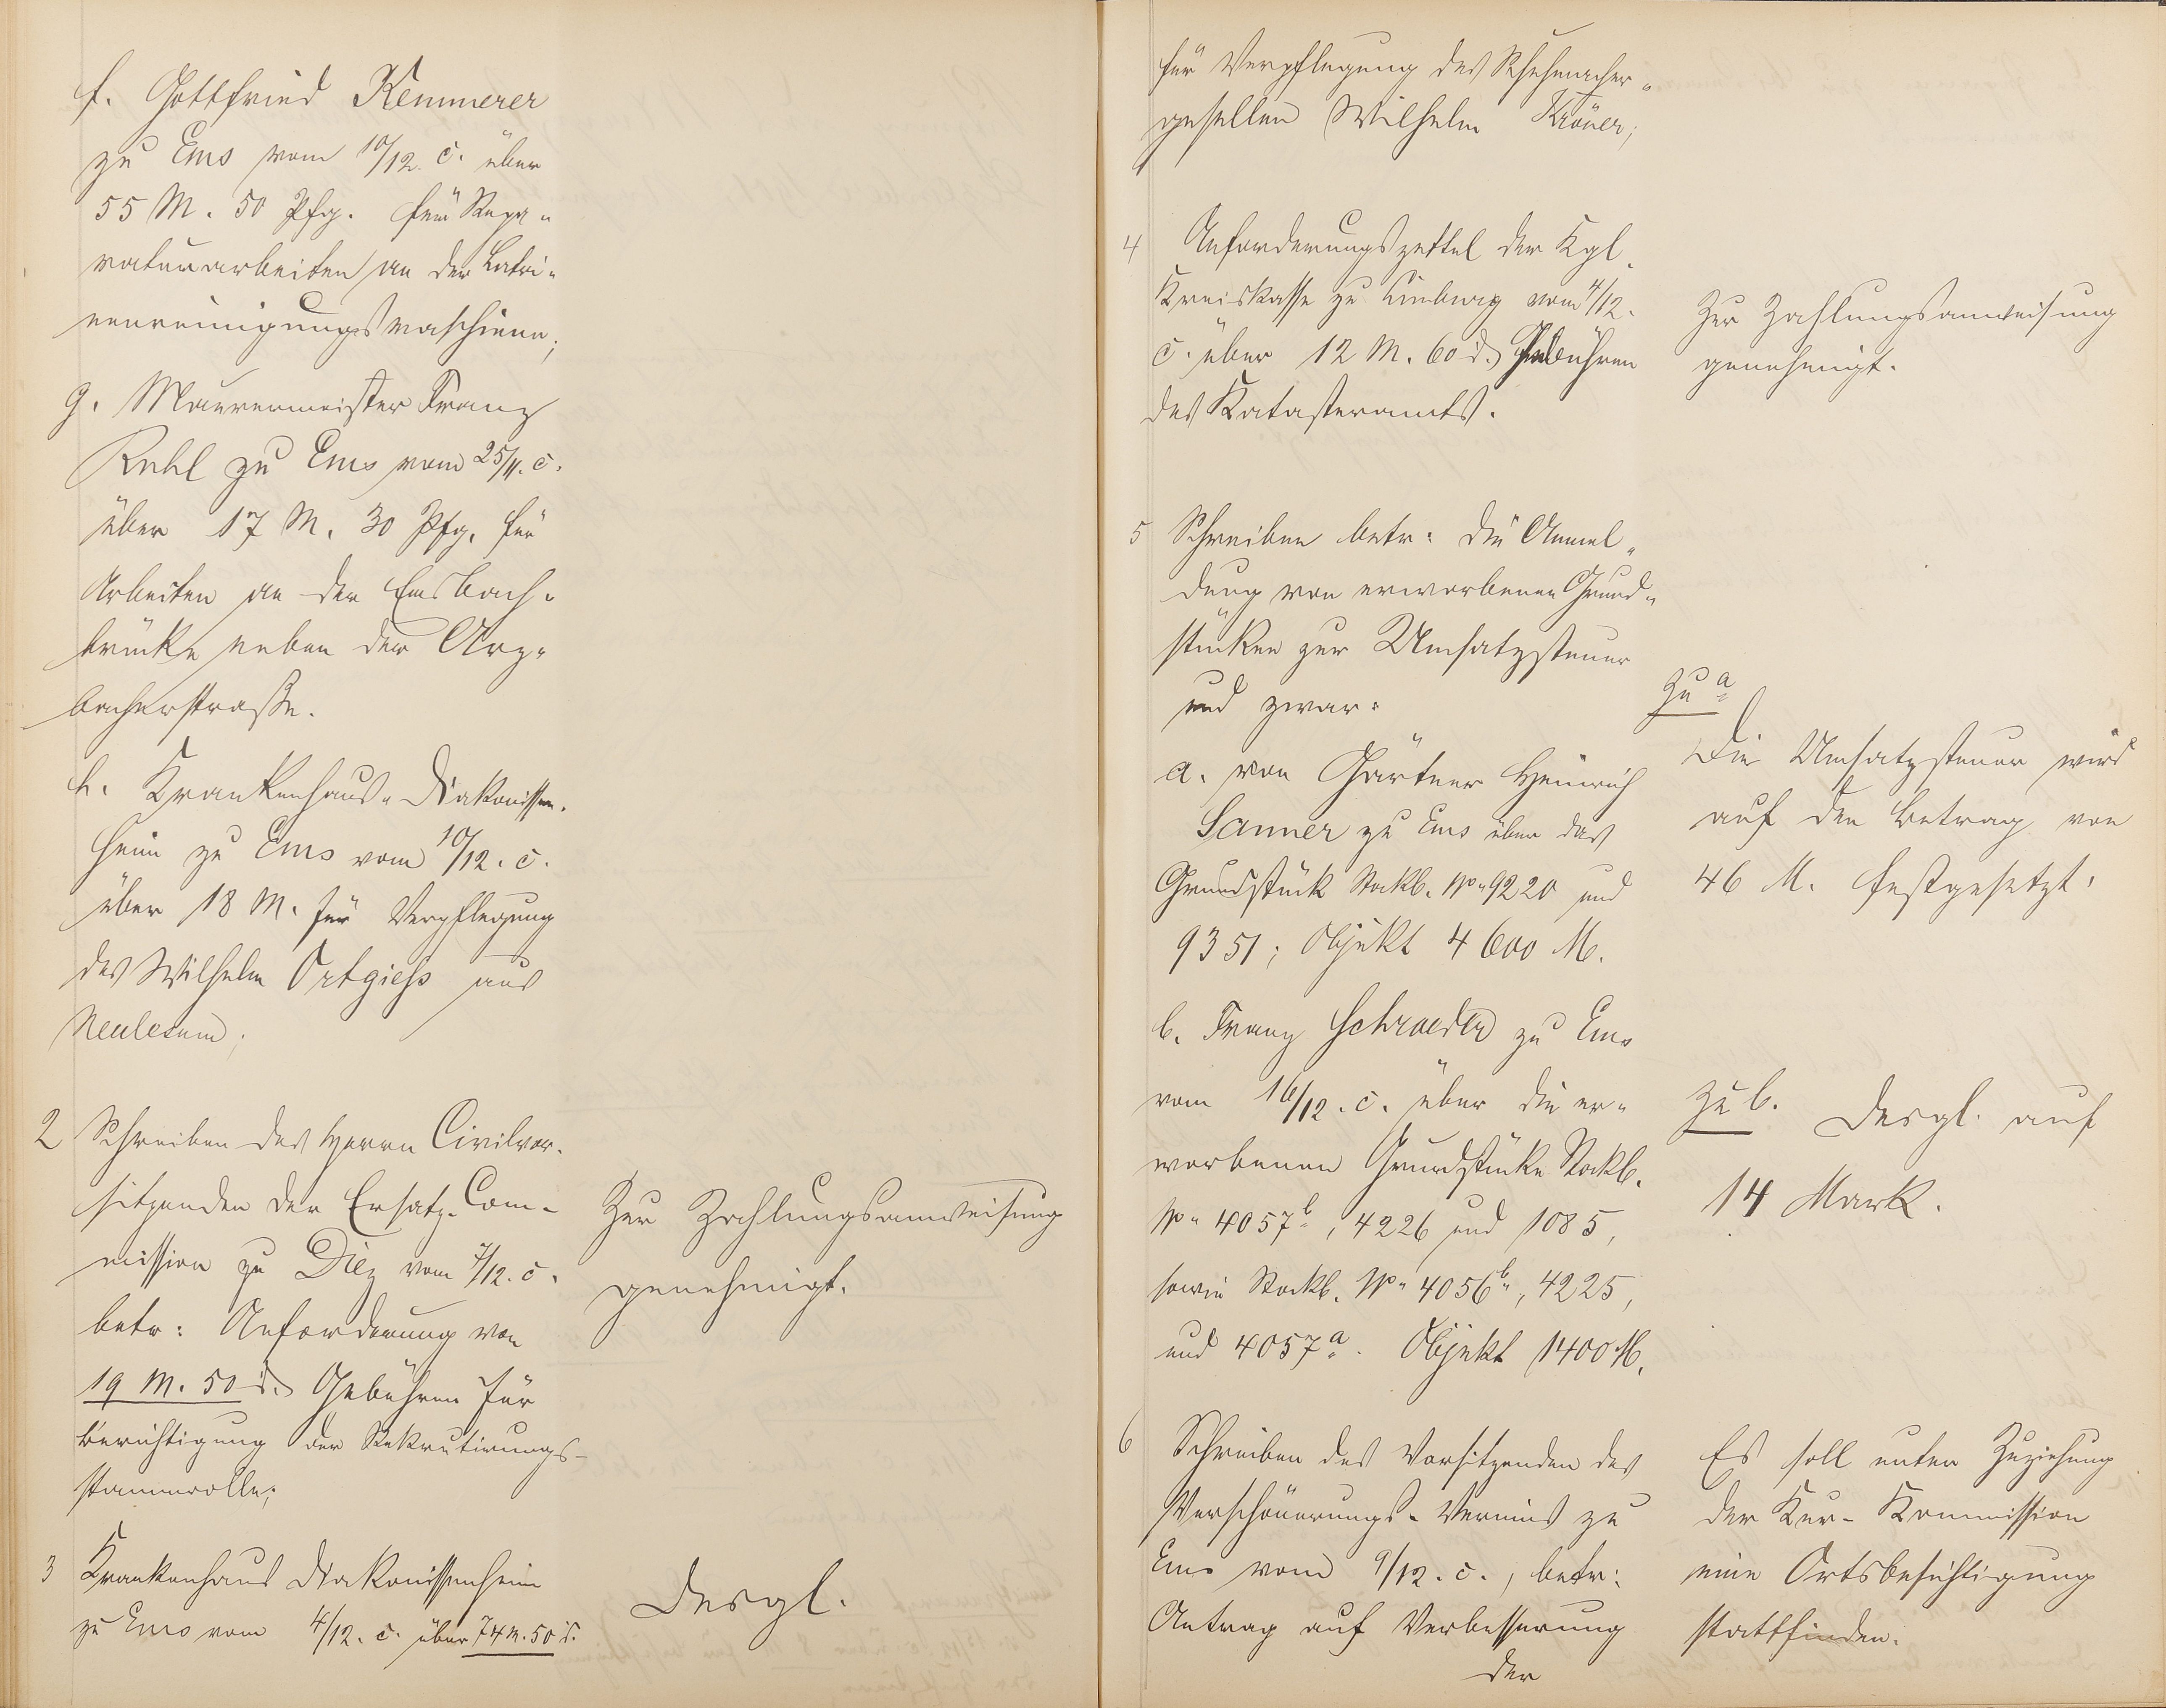 f. Gottfried Kemmerer
zu Ems vom 10/12. c. über
55 M. 50 Pfg. für Repa-
raturarbeiten an der Latri-
nenreinigungsmaschiene;
g. Maurermeister Franz
zu Ems vom 25/11. c.
über 17 M. 30 Pfg. für
Arbeiten an der Emsbach-
brücke neben der Arz-
bacherstraße.
h. Krankenhaus-Diakonissen-
heim zu Ems vom 10/12. c.
über 18 M. für Verpflegung
des Wilhelm Ortgiess aus
Neulesum;
2 Schreiben des Herrn Civilvor-
sitzenden der Ersatz-Com-
mission zu Diez vom 7/12. c.
betr: Anforderung von
19 M. 50 d. Gebühren für
Berichtigung der Rekrutirungs-
stammrolle;
Zur Zahlungsanweisung
genehmigt.
3 Krankenhaus Diakonissenheim
zu Ems vom 4/12. c. über 74 M. 50 d.
Desgl.
für Verpflegung des Schuhmacher-
gesellen Wilhelm Kröner;
4 Anforderungszettel der Kgl.
Kreiskasse zu Limburg vom 4/12.
c. über 12 M. 60 d. Gebühren
des Katasteramts.
Zur Zahlungsanweisung
genehmigt.
5 Schreiben betr: die Anmel-
dung von erworbenen Grund-
stücken zur Umsatzsteuer
und zwar:
a. von Gärtner Heinrich
Sanner zu Ems über das
Grundstück Stockb. No. 9220 und
9351; Objekt 4600 M.
Zu a
Die Umsatzsteuer wird
auf den Betrag von
46 M. festgesetzt.
b. Franz Schraeder zu Ems
vom 16/12. c. über die er-
worbenen Grundstücke Stockb.
No. 4057b, 4226 und 1085,
sowie Stockb. No. 4056b, 4225,
und 4057a. Objekt 1400 M.
zu b. Desgl. auf
14 Mark.
6 Schreiben des Vorsitzenden des
Verschönerungs-Vereins zu
Ems vom 9/12. c., betr:
Antrag auf Verbesserung
der
Es soll unter Zuziehung
der Kur-Kommission
eine Ortsbesichtigung
stattfinden.